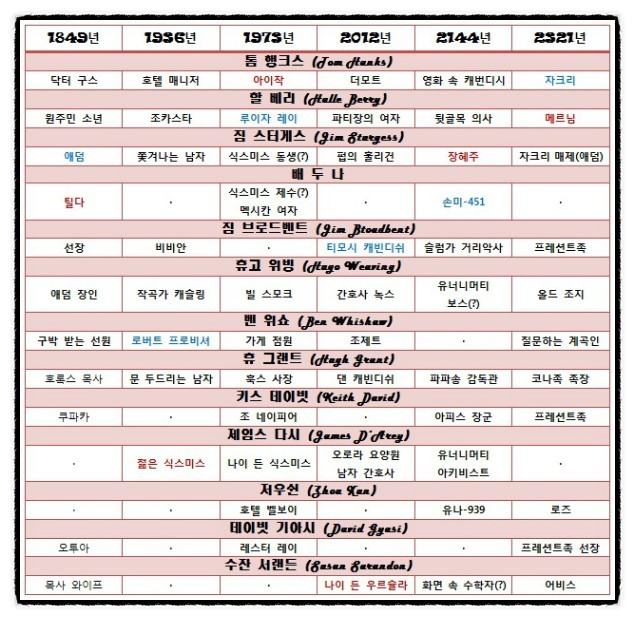 1849년 1936년 1973년 2012년 2144년 2321년
톰 행크스 (Tom Hanks)
닥터 구스 호텔 매니저 아이작 더모트 영화 속 캐번디시 자크리
할 베리 (Halle Berry)
원주민 소년 조카스타 루이자 레이 파티장의 여자 뒷골목 의사 메르님
짐 스터게스 (Jim Sturgess)
애덤 쫓겨나는 남자 식스미스 동생(?) 펍의 훌리건 장혜주 자크리 매제(애덤)
배 두 나
틸다 · 식스미스 제수(?) · 손미-451 ·
멕시칸 여자
짐 브로드벤트 (Jim Btoadbent)
선장 비비안 · 티모시 캐빈디쉬 슬럼가 거리악사 프레션트족
휴고 위빙 (Hugo Weaving)
애덤 장인 작곡가 캐슬링 빌 스모크 간호사 녹스 유너니머티 올드 조지
보스(?)
벤 위쇼 (Ben Whishaw)
구박 받는 선원 로버트 프로비셔 가게 점원 조제트 · 질문하는 계곡인
휴 그랜트 (Hugh Grant)
호록스 목사 문 두드리는 남자 훅스 사장 댄 캐빈디쉬 파파송 감독관 코나족 족장
키스 데이빗 (Keith David)
쿠파카 · 조 네이피어 · 아피스 장군 프레션트족
제임스 다시 (James D'Arcy)
· 젊은 식스미스 나이 든 식스미스 오로라 요양원 유너니머티 ·
남자 간호사 아키비스트
저우쉰 (Zhou Xun)
· · 호텔 벨보이 · 유나-939 로즈
데이빗 기아시 (David Gyasi)
오투아 · 레스터 레이 · · 프레션트족 선장
수잔 서랜든 (Susan Sarandon)
목사 와이프 · · 나이 든 우르슬라 화면 속 수학자(?) 어비스